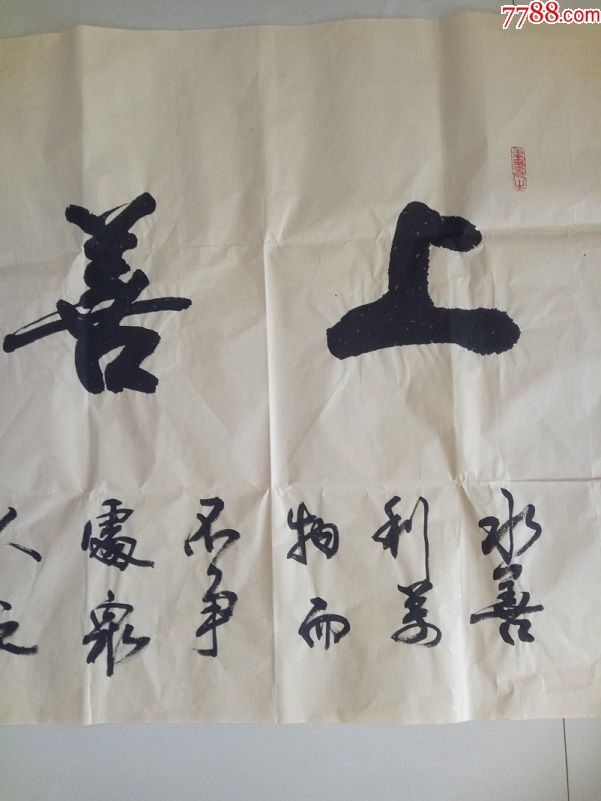 7788.com
上善
水善
利万
物而
不争
處衆
人之